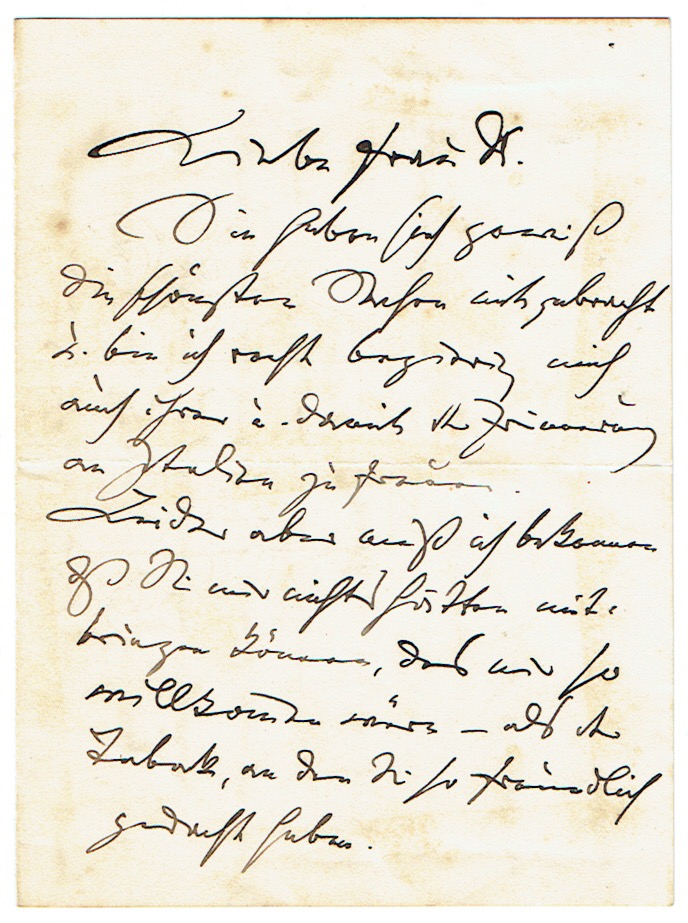 Liebe Frau H.
Sie haben sich gewiß
die schönsten Sachen mitgebracht
u. bin ich recht begierig mich
auch ihrer u. damit der Erinnerung
an Italien zu freuen.
Leider aber muß ich bekennen
dß Sie mir nichts hätten mit-
bringen können, das mir so
willkommen wäre – als der
Tabak, an den Sie so freundlich
gedacht haben.